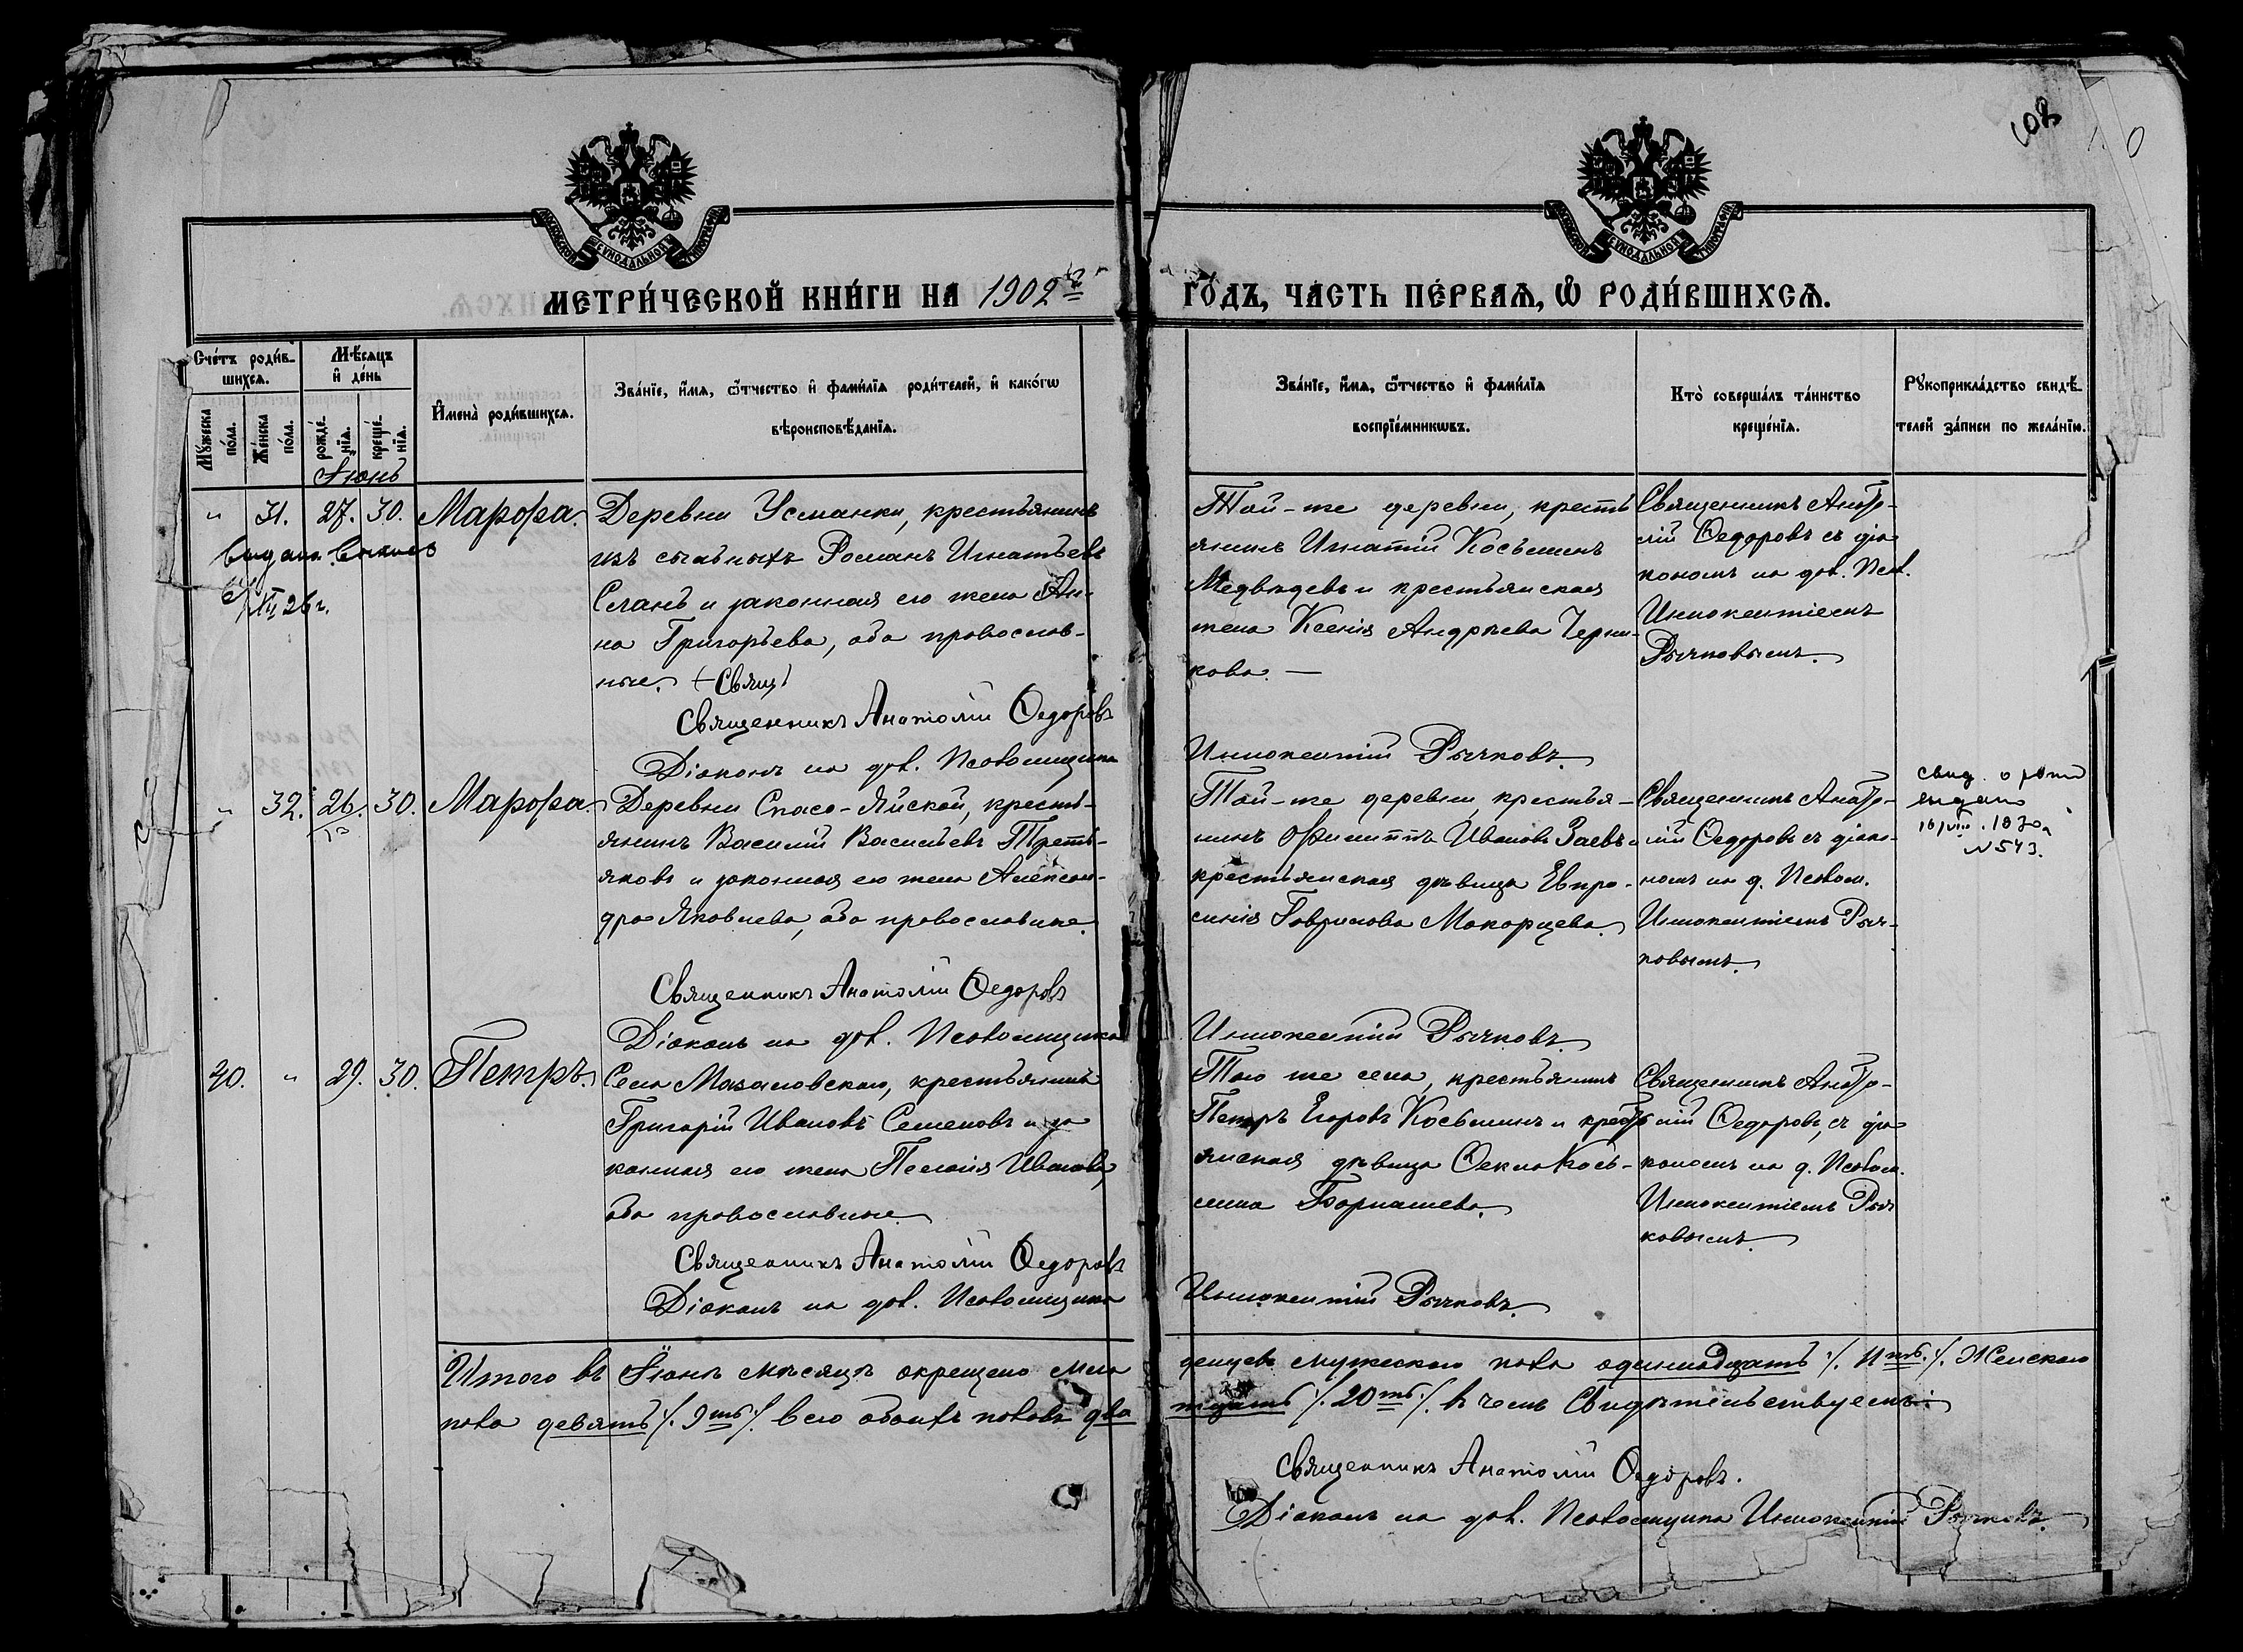 108
МОСКОВСКОЙ СѴНОДАЛЬНОЙ ТИПОГРАФІИ
МОСКОВСКОЙ СѴНОДАЛЬНОЙ ТИПОГРАФІИ
МЕТРИ́ЧЕСКОЙ КНИ́ГИ НА 1902й ГО́ДЪ, ЧАСТЬ ПЕ́РВАѦ, Ѽ РОДИ́ВШИХСѦ.
Сче́тъ роди́в-
шихсѧ.
Мѣ́сѧцъ
и҆ де́нь
Мꙋ́жеска
по́ла.
Же́нска
по́ла.
рожде́-
нїѧ.
креще́-
нїѧ.
И҆мена̀ роди́вшихсѧ.
Зва́нїе, и҆́мѧ, ѻ҆́тчество и҆ фами́лїѧ роди́телей, и҆ како́гѡ
вѣроисповѣ́данїѧ.
Зва́нїе, и҆́мѧ, ѻ҆́тчество и҆ фами́лїѧ
воспрїе́мникѡвъ.
Кто̀ соверша́лъ та́инство
креще́нїѧ.
Рꙋкоприкла́дство свидѣ́-
телей за́писи по жела́нїю.
Іюнь
" 31. 27. 30. Марѳа.
Деревни Усманки, крестьянинъ
изъ ссыльныхъ Романъ Игнатьевъ
и законная его жена Ан-
на Григорьева, оба православ-
ные. (Свящ)
Священникъ Анатолій Ѳедоровъ
Діаконъ на дов. Псаломщика
Той-же деревни, кресть
янинъ Игнатій Косьминъ
Медвѣдевъ и крестьянская
жена Ксенія Андрѣева Черни-
кова. —
Иннокентій Рычковъ.
Священникъ Анато-
лій Ѳедоровъ съ діа
кономъ на дов. Псал.
Иннокентіемъ
Рычковымъ.
выдана выпись
26 г.
" 32. 26. 30. Марѳа.
Деревни Спасо-Яйской, кресть-
янинъ Василій Васильевъ Треть-
яковъ и законная его жена Алексан-
дра Яковлева, оба православные.
Священникъ Анатолій Ѳедоровъ
Діаконъ на дов. Псаломщика
Той-же деревни, крестья-
нинъ Филиппъ Ивановъ Заевъ и
крестьянская дѣвица Евпро-
синія Гаврилова Макарцева.
Иннокентій Рычковъ.
Священникъ Анато-
лій Ѳедоровъ съ діако-
номъ на д. Псалом.
Иннокентіемъ Рыч-
ковымъ.
свид. о рожд
выдано
№ 543.
40. " 29. 30. Петръ.
Села Мазаловскаго, крестьянинъ
Григорій Ивановъ Семеновъ и за
конная его жена Пелагія Иванова,
оба православные.
Священникъ Анатолій Ѳедоровъ
Діаконъ на дов. Псаломщика
Того же села, крестьянинъ
Петръ Егоровъ Косьминъ и кресть
янская дѣвица Ѳекла Кось-
мина Барнашева.
Иннокентій Рычковъ.
Священникъ Анато-
лій Ѳедоровъ, съ діа
кономъ на д. Псалом.
Иннокентіемъ Рыч
ковымъ.
Итого въ Іюнѣ мѣсяцѣ окрещено мла денцевъ мужескаго пола одиннадцать /. 11ть ./. Женскаго
пола девять /. 9ть ./. всего обоихъ половъ два дцать /. 20ть ./. въ чемъ Свидѣтельствуемъ:
Священникъ Анатолій Ѳедоровъ.
Діаконъ на дов. Псаломщика Иннокентій Рычковъ.